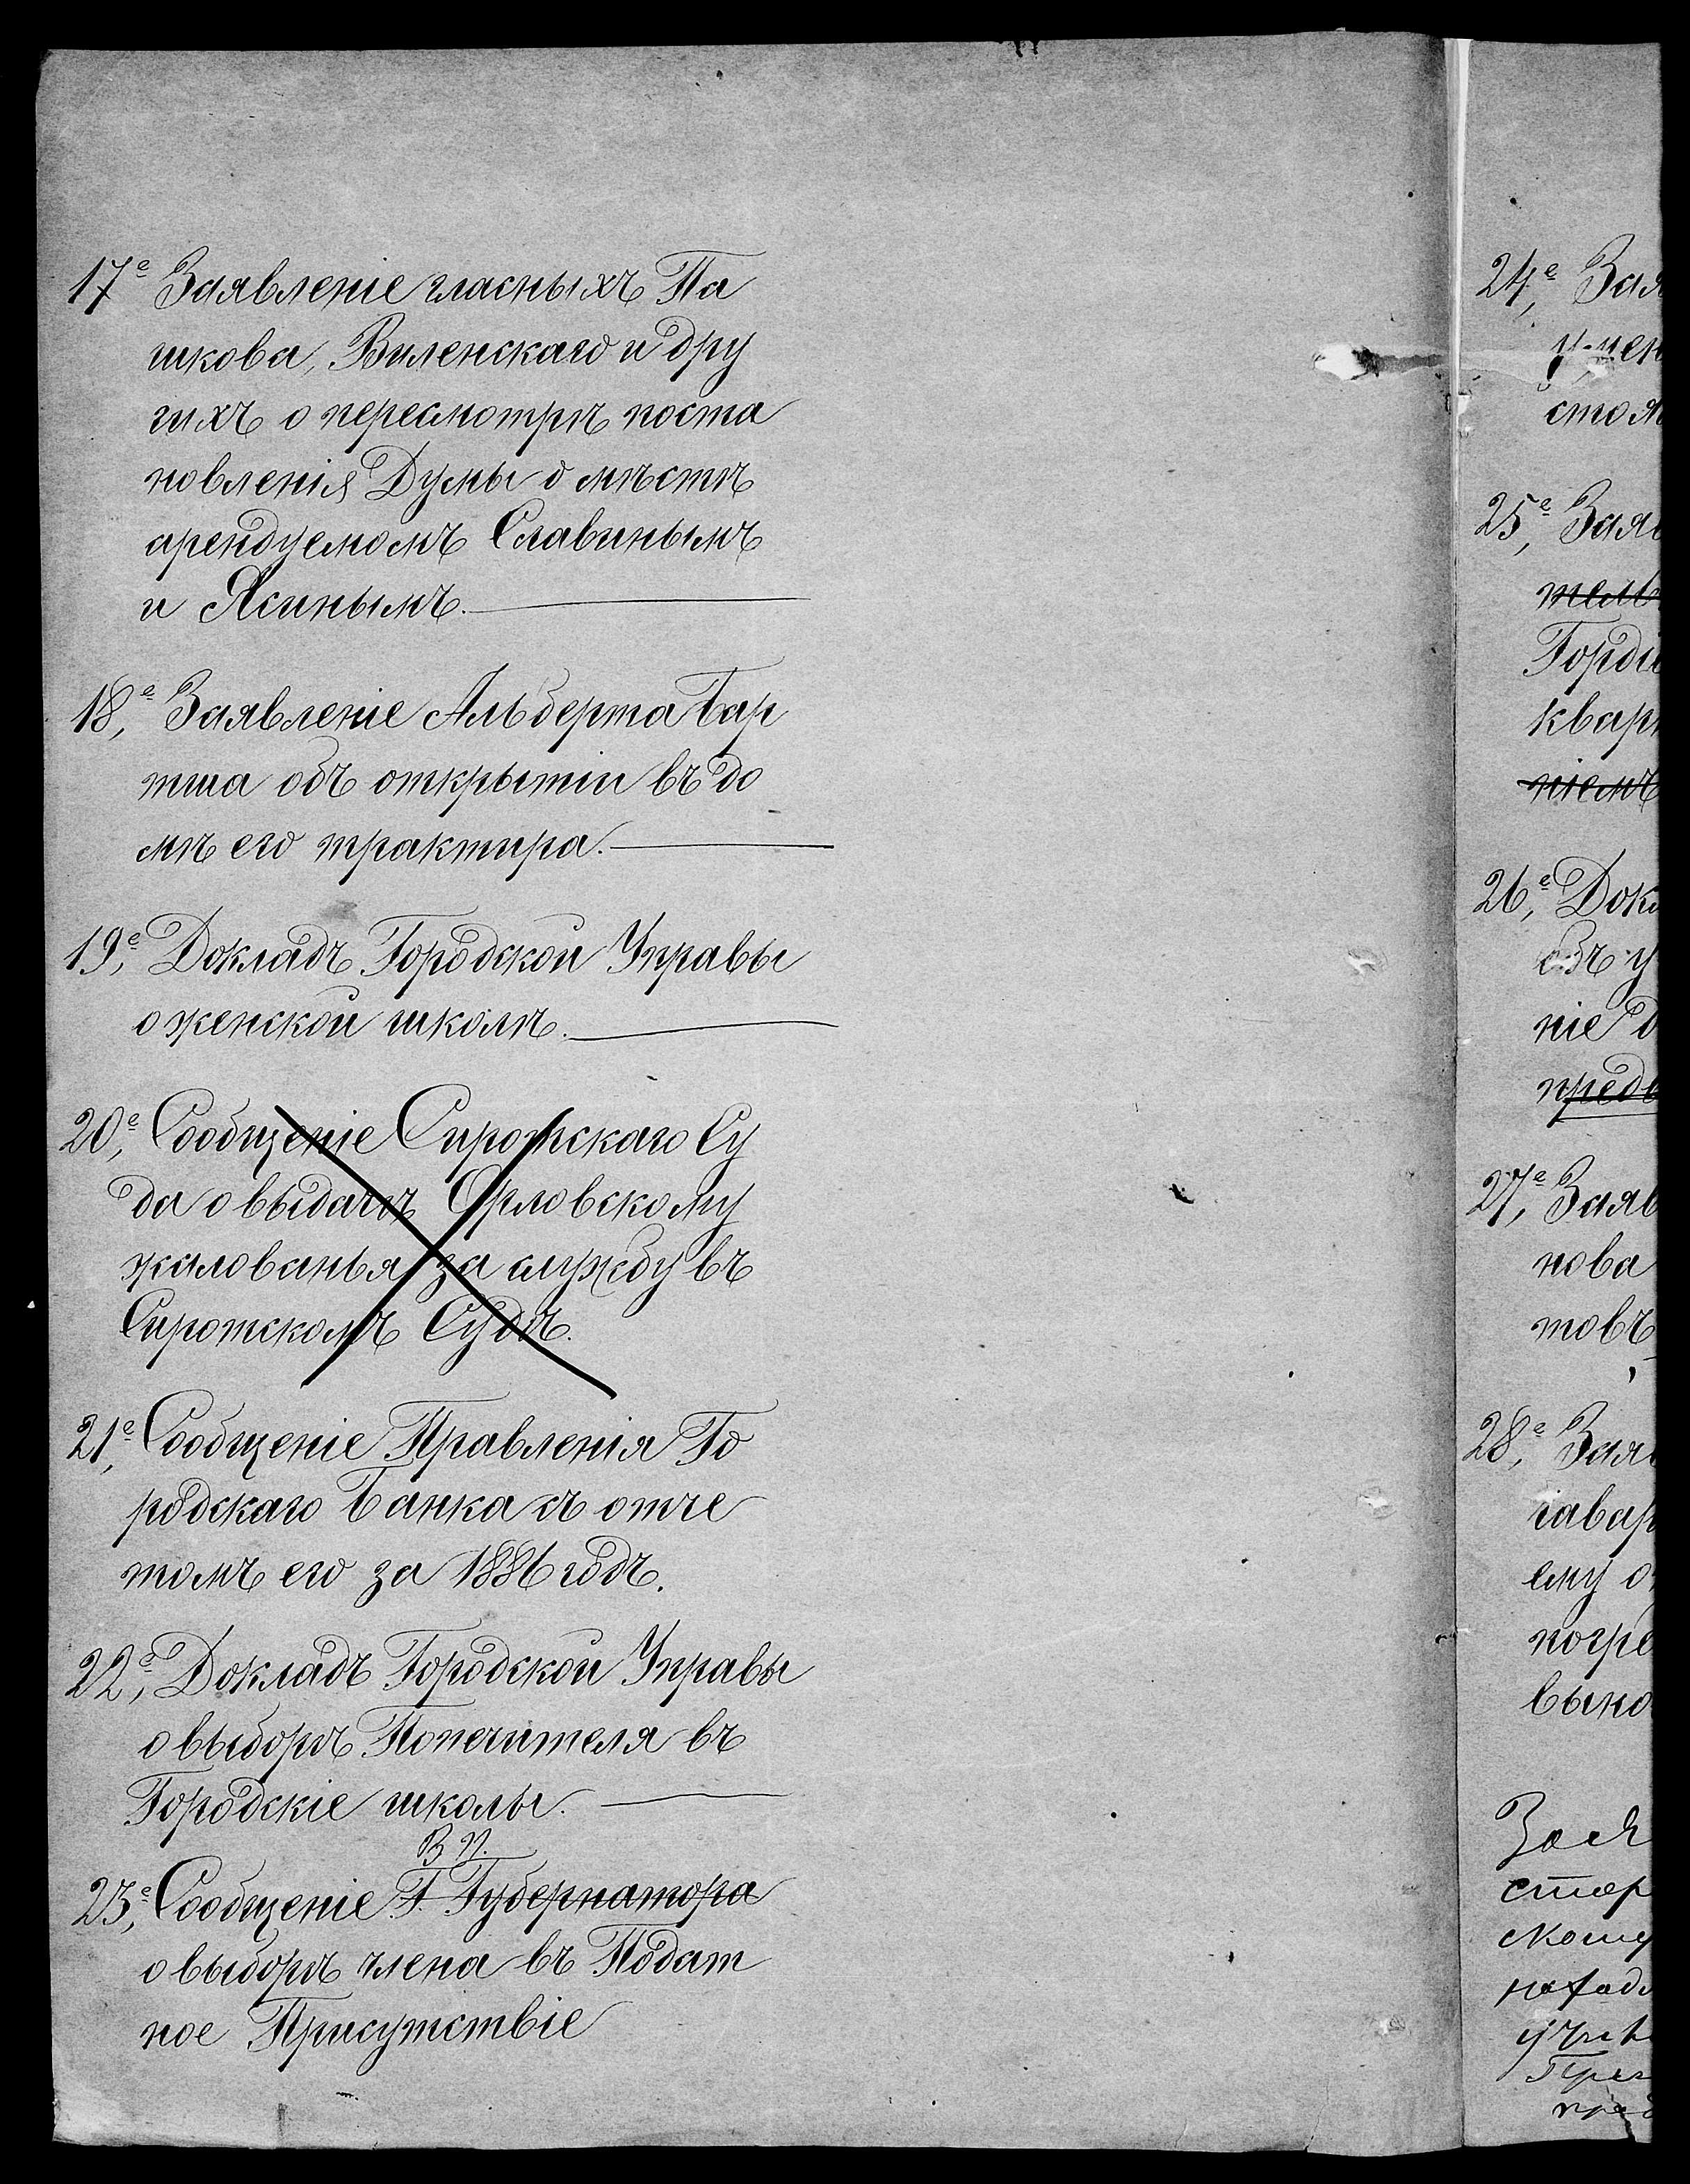 17е Заявленіе гласныхъ Па
шкова, Виленскаго и дру
гихъ о пересмотрѣ поста
новленія Думы о мѣстѣ
арендуемомъ Славинымъ
и Ясинымъ.
18,е Заявленіе Альберта Бар
тша объ открытіи въ до
мѣ его трактира.
19,е Докладъ Городской Управы
о женской школѣ.
20,е Сообщеніе Сиротскаго Су
да о выдачѣ Орловскому
жалованья за службу въ
Сиротскомъ Судѣ.
21,е Сообщеніе Правленія Го
родскаго Банка съ отче
томъ его за 1886 годъ.
22,е Докладъ Городской Управы
о выборѣ Попечителя въ
Городскіе школы.
В П.
23,е Сообщеніе Г. Губернатора
о выборѣ члена въ Подат
ное Присутствіе
24,е Заяв
стоя
25,е Заяв
тель
Гордіе
кварт
ніемъ
26,е Докл
объ у
ніе д
предв
27,е Заяв
нова
товъ
28,е Заяв
гавар
ему о
погре
выко